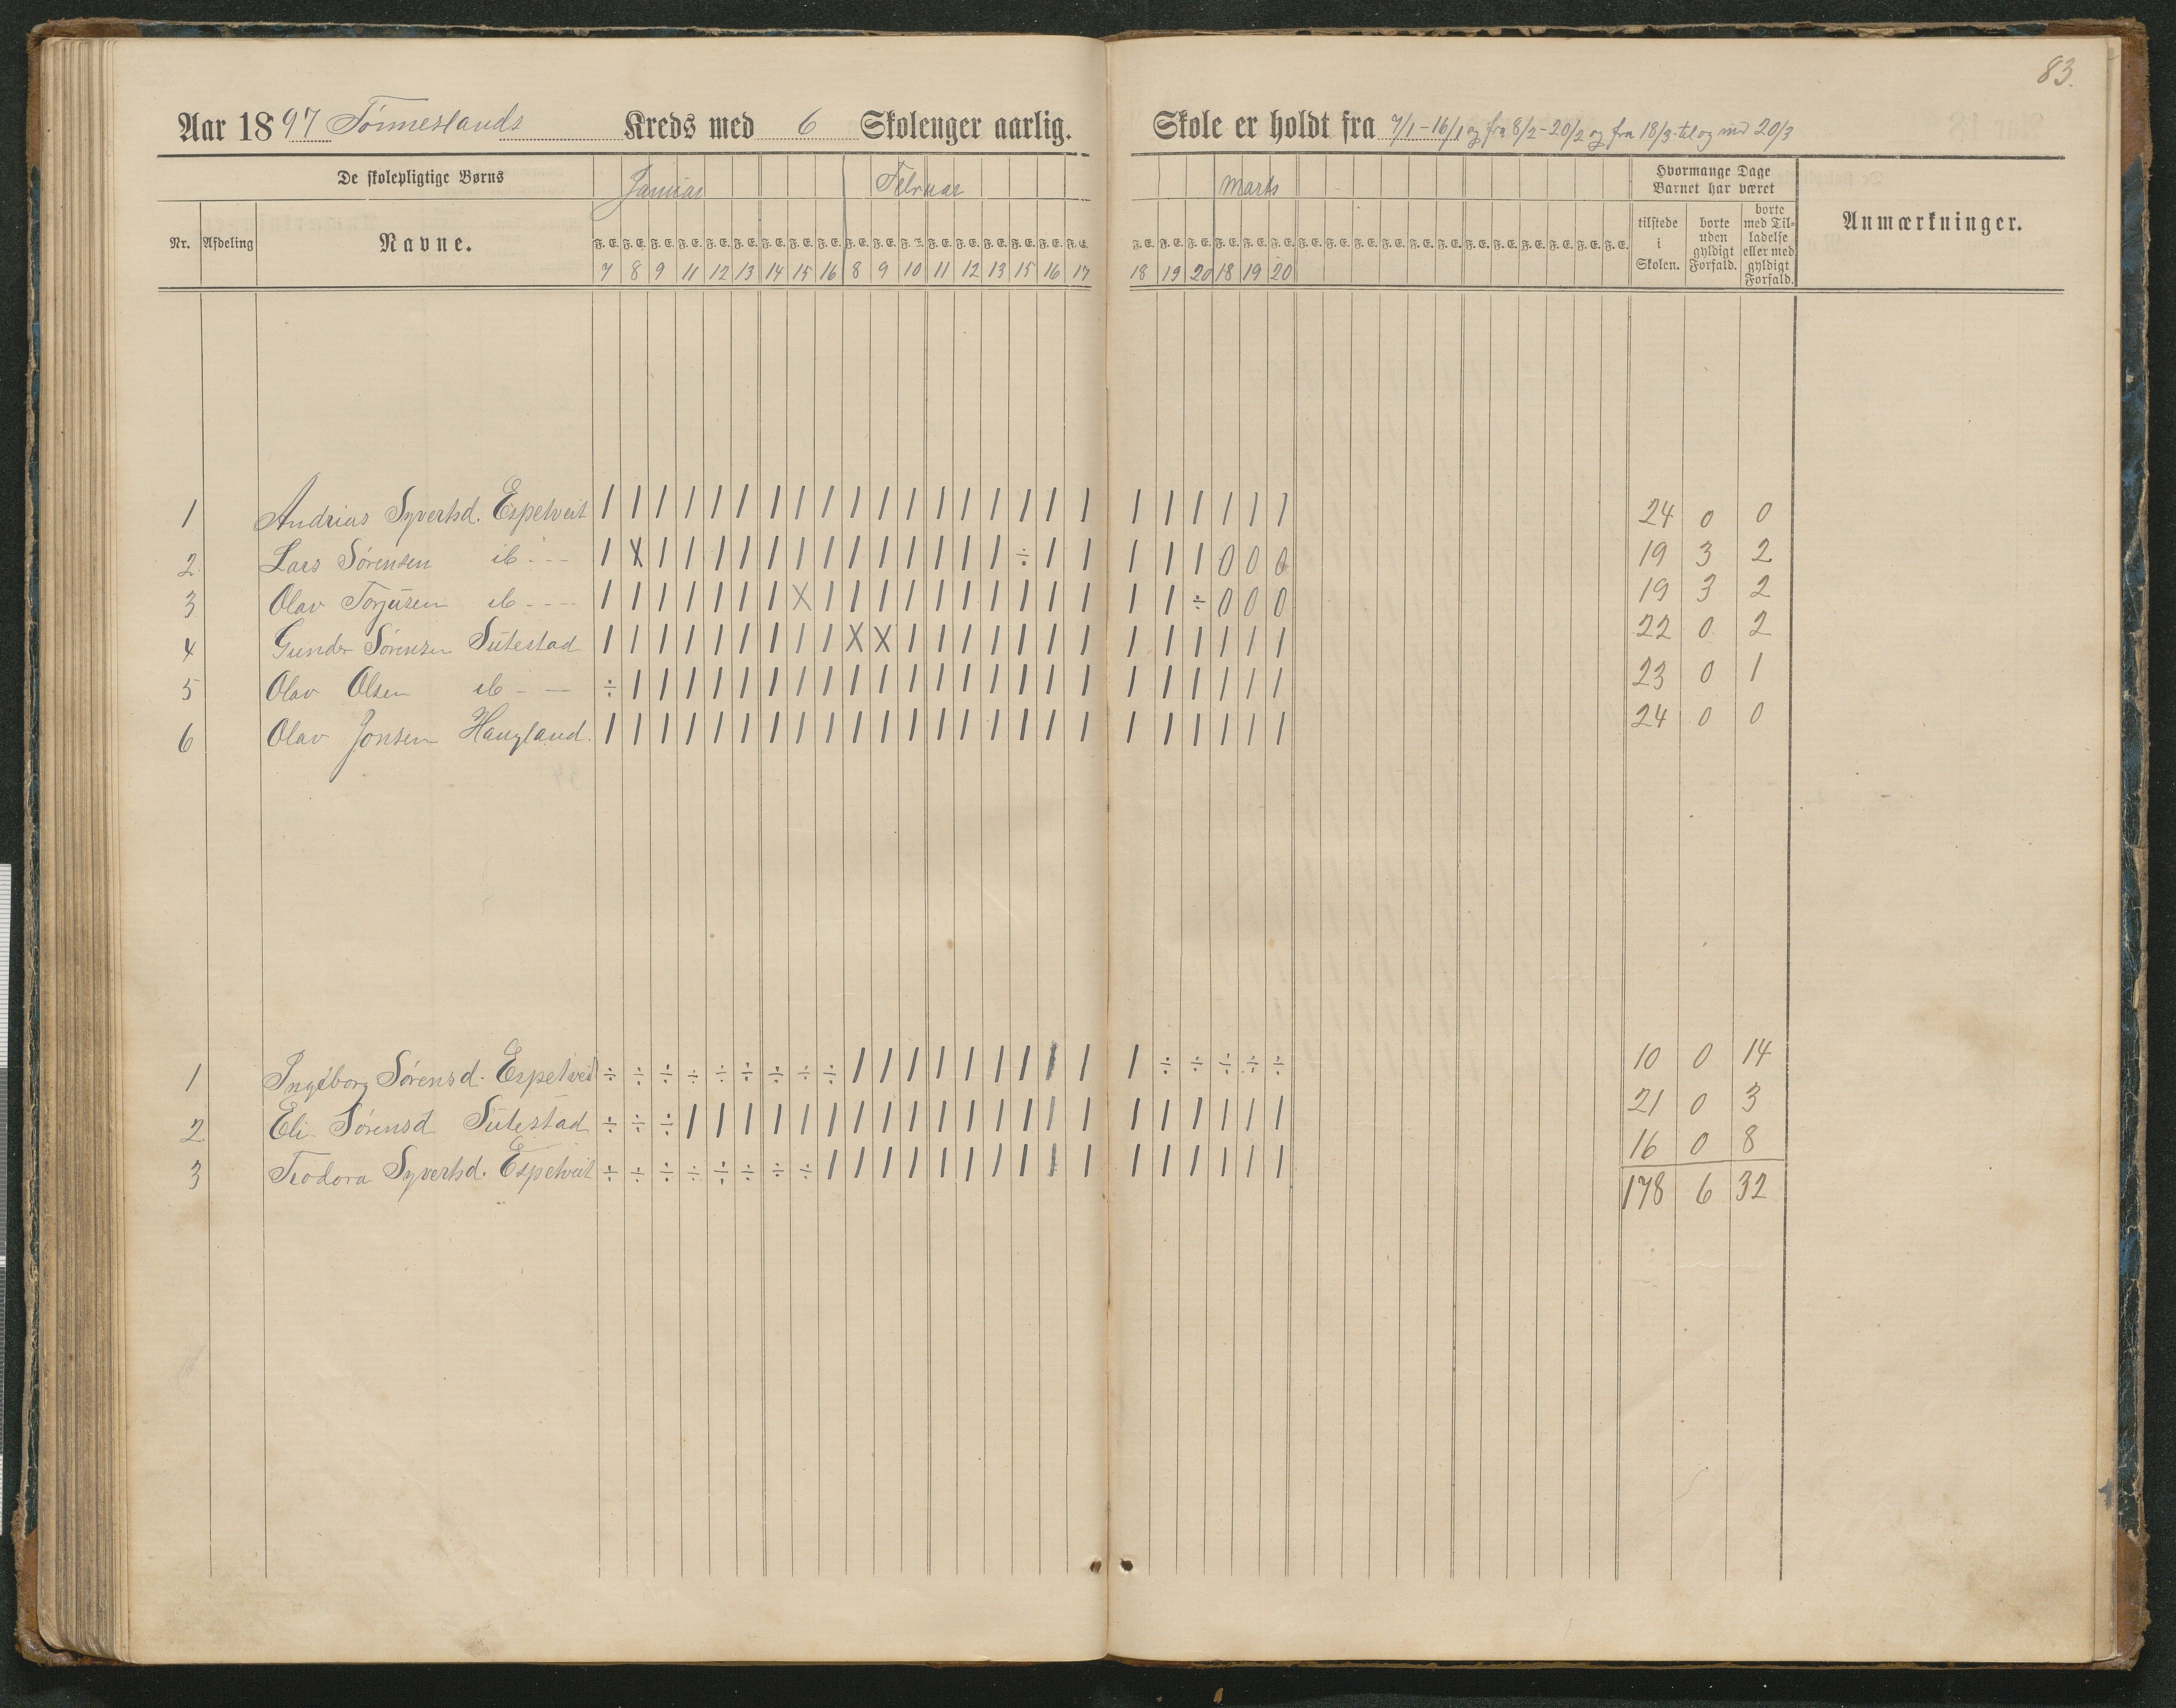 83.
Aar 1897 Tönneslands Kreds med 6 Skoleuger aarlig. Skole er holdt fra 7/1-16/1 og fra 8/2-20/2 og fra 18/3 til og med 20/3
De skolepligtige Børns Januar Februar Marts Hvormange Dage Barnet har været Anmærkninger.
Nr. Afdeling Navne. F. E. F. E. F. E. F. E. F. E. F. E. F. E. F. E. F. E. F. E. F. E. F. E. F. E. F. E. F. E. F. E. F. E. F. E. F. E. F. E. F. E. F. E. F. E. F. E. F. E. F. E. F. E. F. E. F. E. F. E. F. E. F. E. F. E. F. E. F. E. F. E. tilstede i Skolen. borte uden gyldigt Forfald. borte med Tilladelse eller med gyldigt Forfald.
7 8 9 11 12 13 14 15 16 8 9 10 11 12 13 15 16 17 18 19 20 18 19 20
1 Andrias Syvertsd. Espetveit / / / / / / / / / / / / / / / / / / / / / / / / 24 0 0
2. Lars Sørensen ib - - - / X / / / / / / / / / / / / / ÷ / / / / / 0 0 0 19 3 2
3 Olav Torjusen ib - - - / / / / / / / X / / / / / / / / / / / / ÷ 0 0 0 19 3 2
4 Gunder Sørensen Sutestad / / / / / / / / / X X / / / / / / / / / / / / / 22 0 2
5 Olav Olsen ib - - ÷ / / / / / / / / / / / / / / / / / / / / / / / 23 0 1
6 Olav Jonsen Haugland. / / / / / / / / / / / / / / / / / / / / / / / / 24 0 0
1 Ingeborg Sørensd. Espetveit ÷ ÷ ÷ ÷ ÷ ÷ ÷ ÷ ÷ / / / / / / / / / / ÷ ÷ ÷ ÷ ÷ 10 0 14
2. Eli Sørensd. Sutestad ÷ ÷ ÷ / / / / / / / / / / / / / / / / / / / / / 21 0 3
3 Teodora Syvertsd. Espetveit ÷ ÷ ÷ ÷ ÷ ÷ ÷ ÷ / / / / / / / / / / / / / / / / 16 0 8
178 6 32